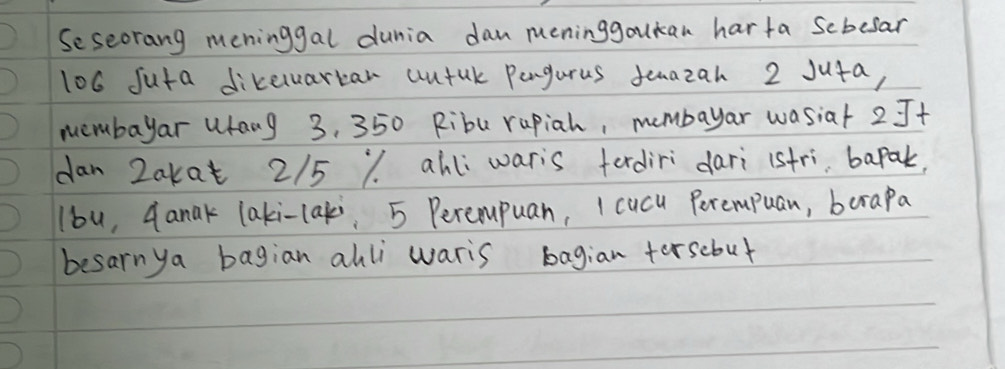 Seseorang meninggal dunia dan meninggalkan harta sebesar
106 Juta dikeluarkan untuk Pengurus Jenazah 2 Juta,
membayar utang 3.350 Ribu rupiah, membayar wasiat 2 Jt
dan Zakat 2/5 %. ahli waris terdiri dari istri, bapak,
Ibu, 4 anak laki-laki, 5 Perempuan, 1 cucu Perempuan, berapa
besarnya bagian ahli waris bagian tersebut